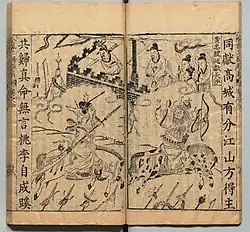 同獻高城有分江山方得主
共歸真命無言桃李自成蹊